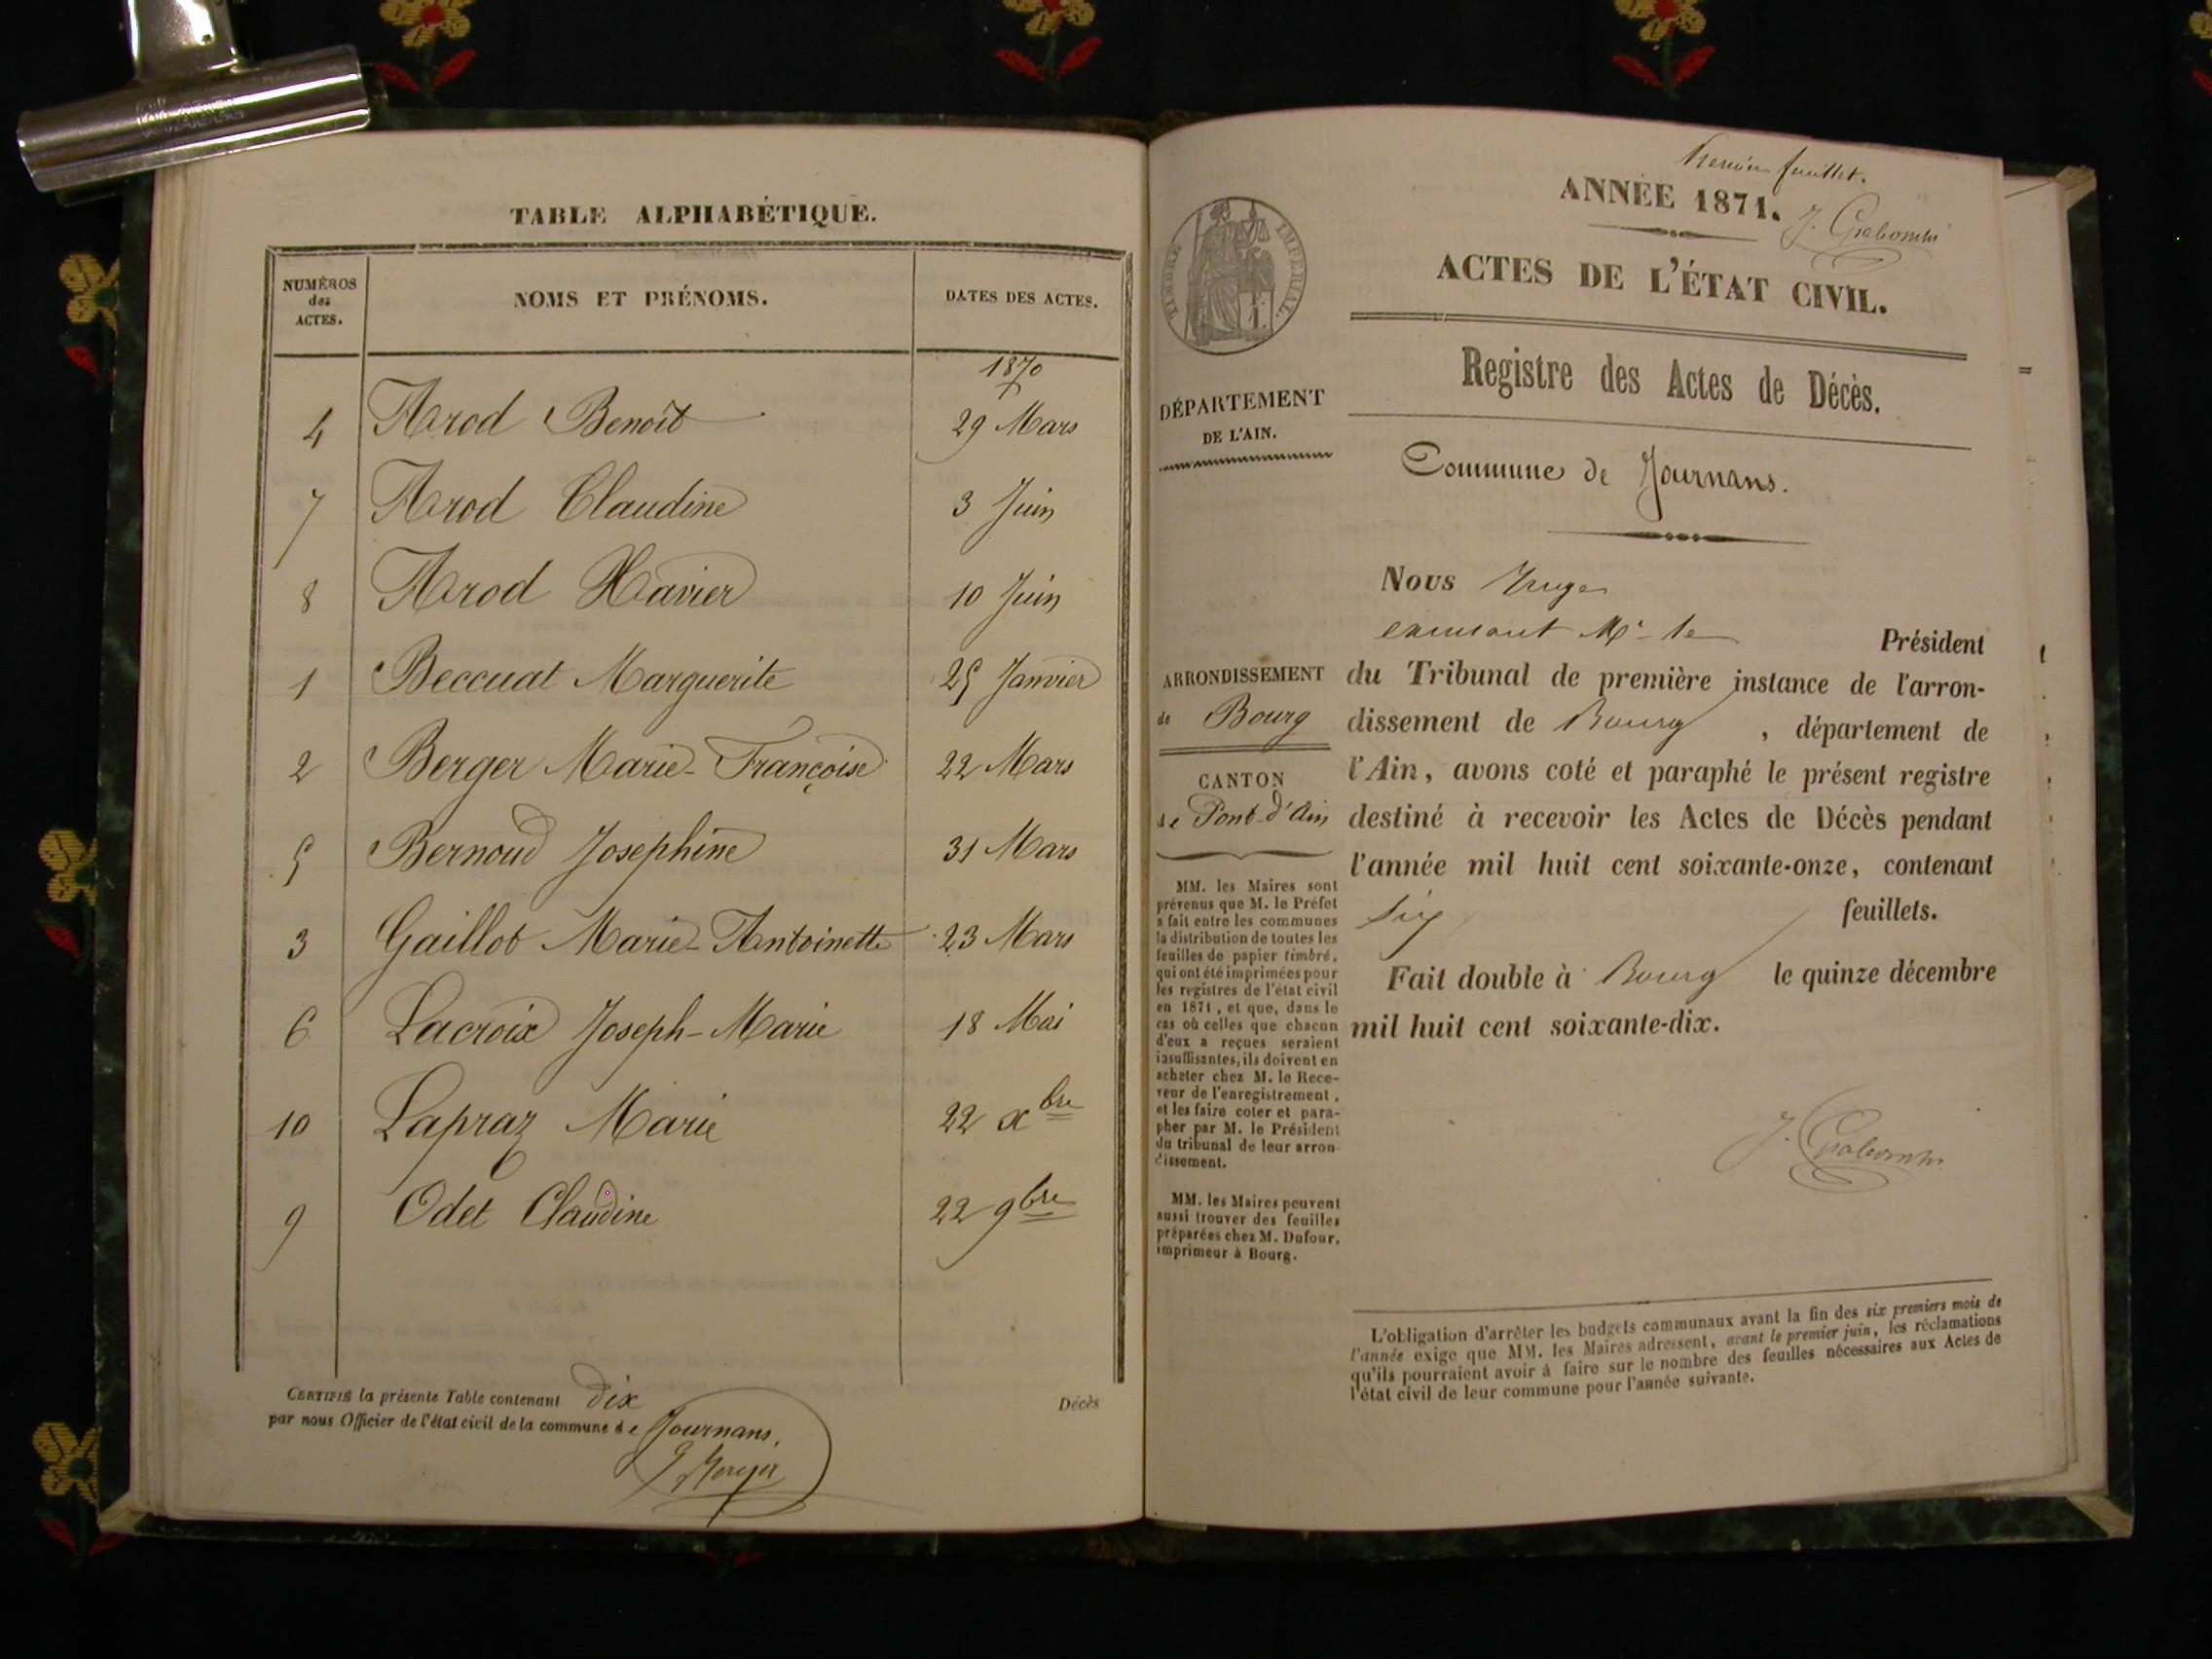 TABLE ALPHABÉTIQUE.
NUMÉROS
des
ACTES.
NOMS ET PRÉNOMS.
DATES DES ACTES.
1870
4 Arod Benoît 29 Mars
7 Arod Claudine 3 Juin
8 Arod Xavier 10 Juin
1 Beccuat Marguerite 25 Janvier
2 Berger Marie-Françoise 22 Mars
5 Bernoud Josephine 31 Mars
3 Gaillot Marie-Antoinette 23 Mars
6 Lacroix Joseph-Marie 18 Mai
10 Lapraz Marie 22 xbre
9 Odet Claudine 22 9bre
CERTIFIÉ la présente Table contenant dix Décès
par nous Officier de l'état civil de la commune de Journans.
Premier feuillet.
ANNÉE 1871.
ACTES DE L'ÉTAT CIVIL.
Registre des Actes de Décès.
Commune de Journans.
TIMBRE IMPÉRIAL.
DÉPARTEMENT
DE L'AIN.
ARRONDISSEMENT
de Bourg
CANTON
de Pont-d'Ain
MM. les Maires sont
prévenus que M. le Préfet
a fait entre les communes
la distribution de toutes les
feuilles de papier timbré,
qui ont été imprimées pour
les registres de l'état civil
en 1871, et que, dans le
cas où celles que chacun
d'eux a reçues seraient
insuffisantes, ils doivent en
acheter chez M. le Rece-
veur de l'enregistrement,
et les faire coter et para-
pher par M. le Président
du tribunal de leur arron-
dissement.
MM. les Maires peuvent
aussi trouver des feuilles
préparées chez M. Dufour,
imprimeur à Bourg.
Nous Juge
Mr le Président
du Tribunal de première instance de l'arron-
dissement de Bourg, département de
l'Ain, avons coté et paraphé le présent registre
destiné à recevoir les Actes de Décès pendant
l'année mil huit cent soixante-onze, contenant
six feuillets.
Fait double à Bourg le quinze décembre
mil huit cent soixante-dix.
L'obligation d'arrêter les budgets communaux avant la fin des six premiers mois de
l'année exige que MM. les Maires adressent, avant le premier juin, les réclamations
qu'ils pourraient avoir à faire sur le nombre des feuilles nécessaires aux Actes de
l'état civil de leur commune pour l'année suivante.